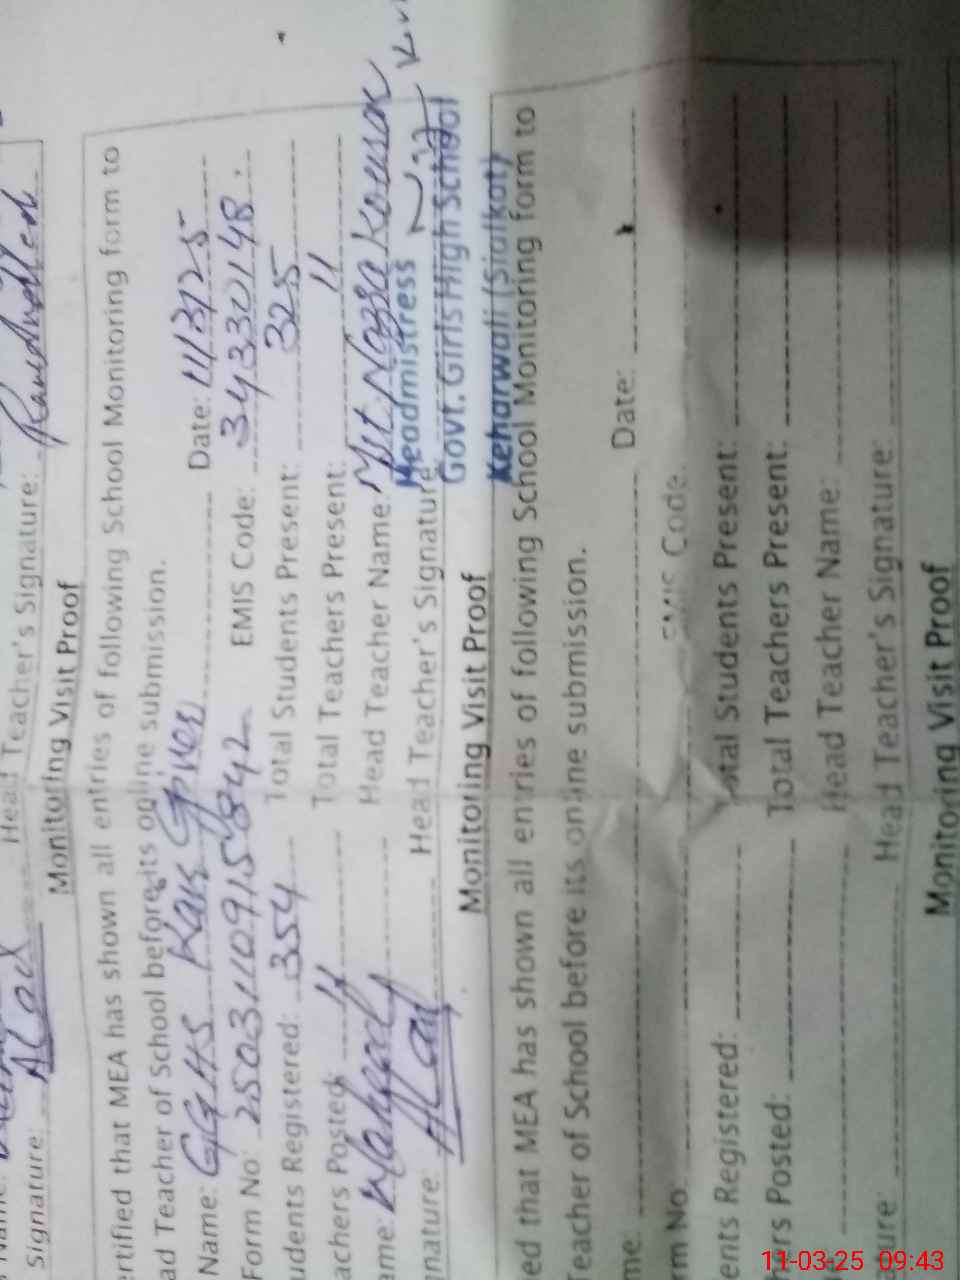 Head Teacher's Signature:
Signature:
Monitoring Visit Proof
ertified that MEA has shown all entries of following School Monitoring form to
ad Teacher of School before its online submission.
Name: GGHS Date: 11/3/25
Form No: EMIS Code: 34330148
udents Registered: 354 Total Students Present: 325
achers Posted: 11 Total Teachers Present: 11
ame: Head Teacher Name: Kousar
Headmistress
gnature: Head Teacher's Signature
Govt. Girls High School
Monitoring Visit Proof Keharwali (Sialkot)
ed that MEA has shown all entries of following School Monitoring form to
Teacher of School before its online submission.
me: Date:
rm No: EMIS Code
ents Registered: Total Students Present:
ers Posted: Total Teachers Present:
Head Teacher Name:
ure: Head Teacher's Signature:
Monitoring Visit Proof
11-03-25 09:43